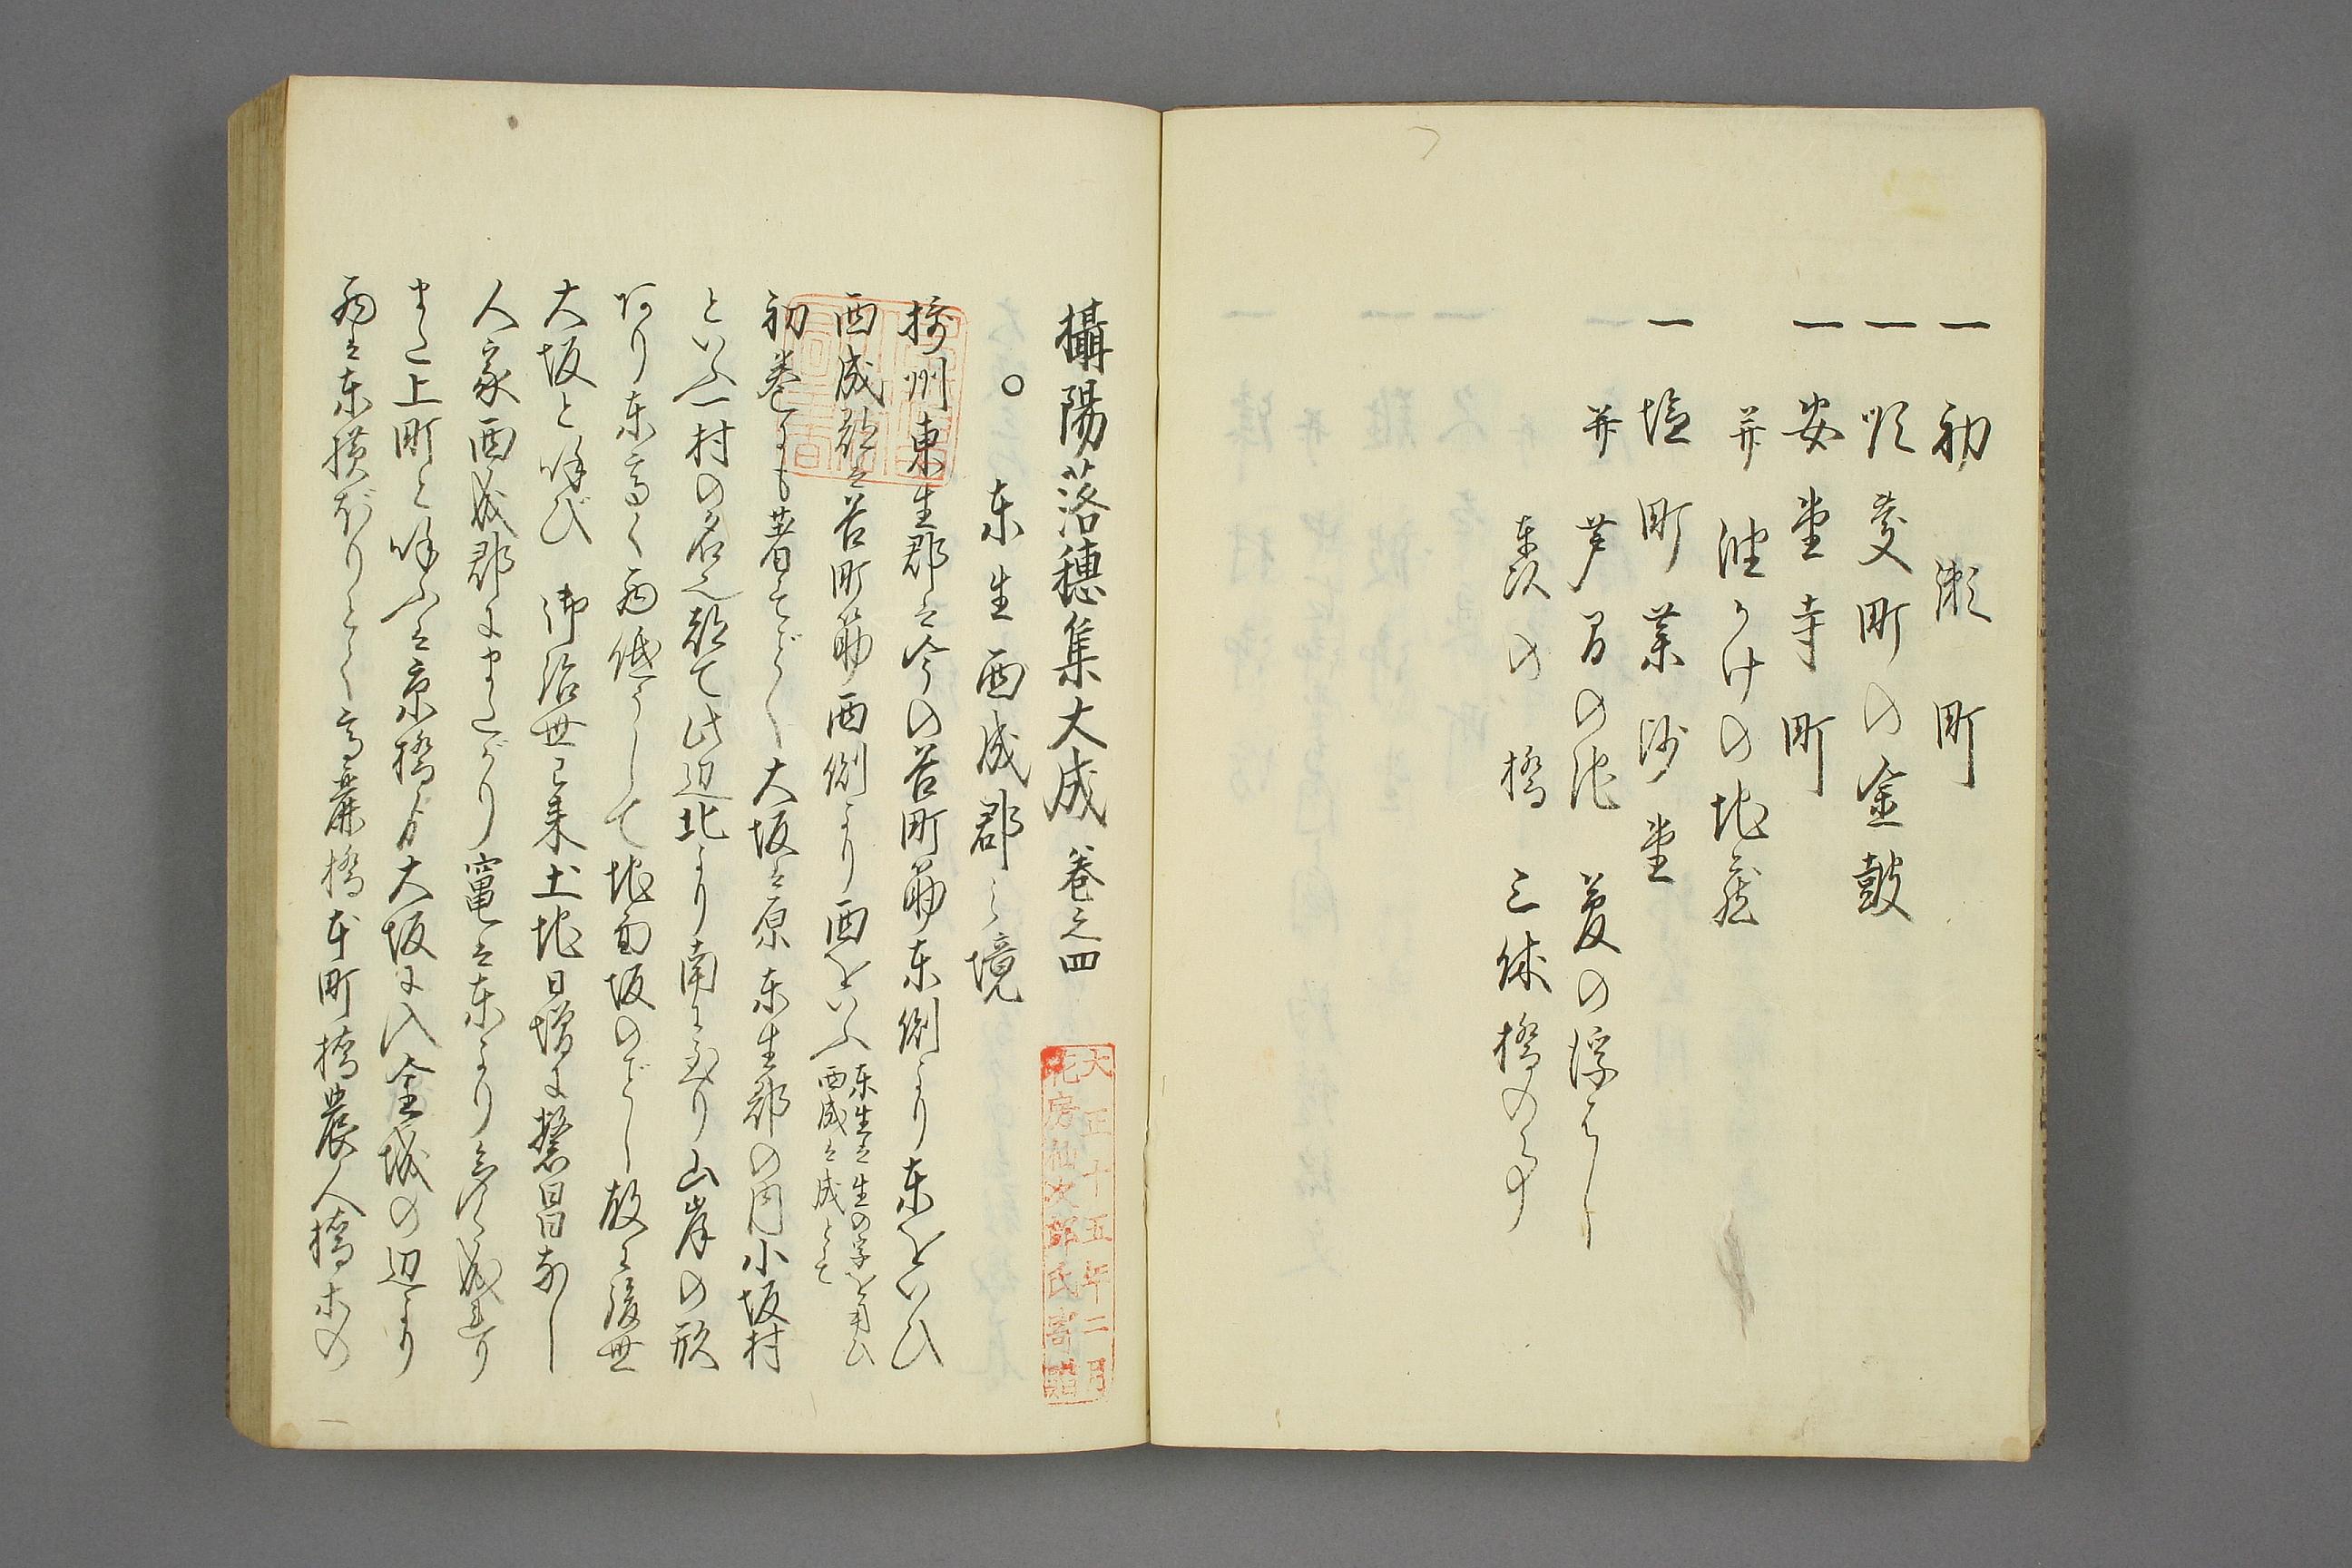 一 初瀬町
一 順慶町の金皷
一 安堂寺町
并油かけの地蔵
一 塩町業沙堂
并芦間の池 菱の浮はし
真次の橋 三休橋の事
攝陽落穂集大成 巻之四
大正十五年二月
花房仙次郎氏寄贈
○ 東生西成郡之境
摂州東生郡は今の谷町筋東側より東をいひ
西成郡は谷町筋西側より西をいふ 東生は生の字を用ひ
西成は成とて
初巻にも著すごとく大坂は原東生郡の内小坂村
といふ一村の名也都て此辺北より南に至り山岸の形
ありり東高く西低うして地面坂のごとし故に後世
大坂と呼び 御治世已来土地日増に繁昌なし
人家西成郡にまたがり竃は東より
また上町と呼ふは京橋より大坂に入金城の辺より
西は東横ぼりとく高麗橋本町橋農人橋末の